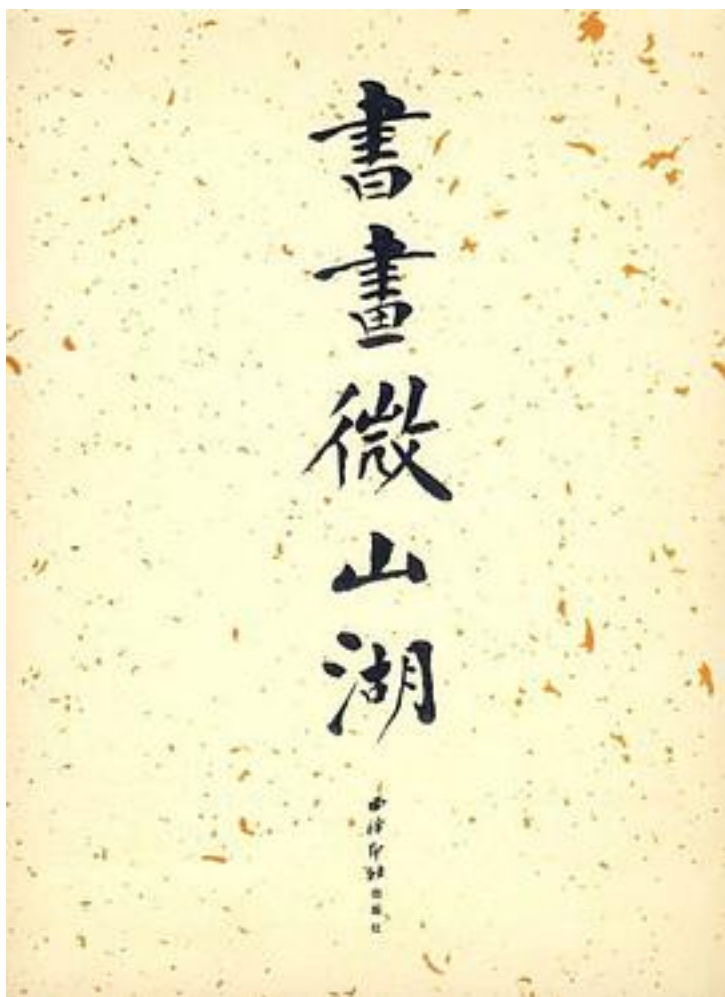 書畫微山湖
西泠印社出版社